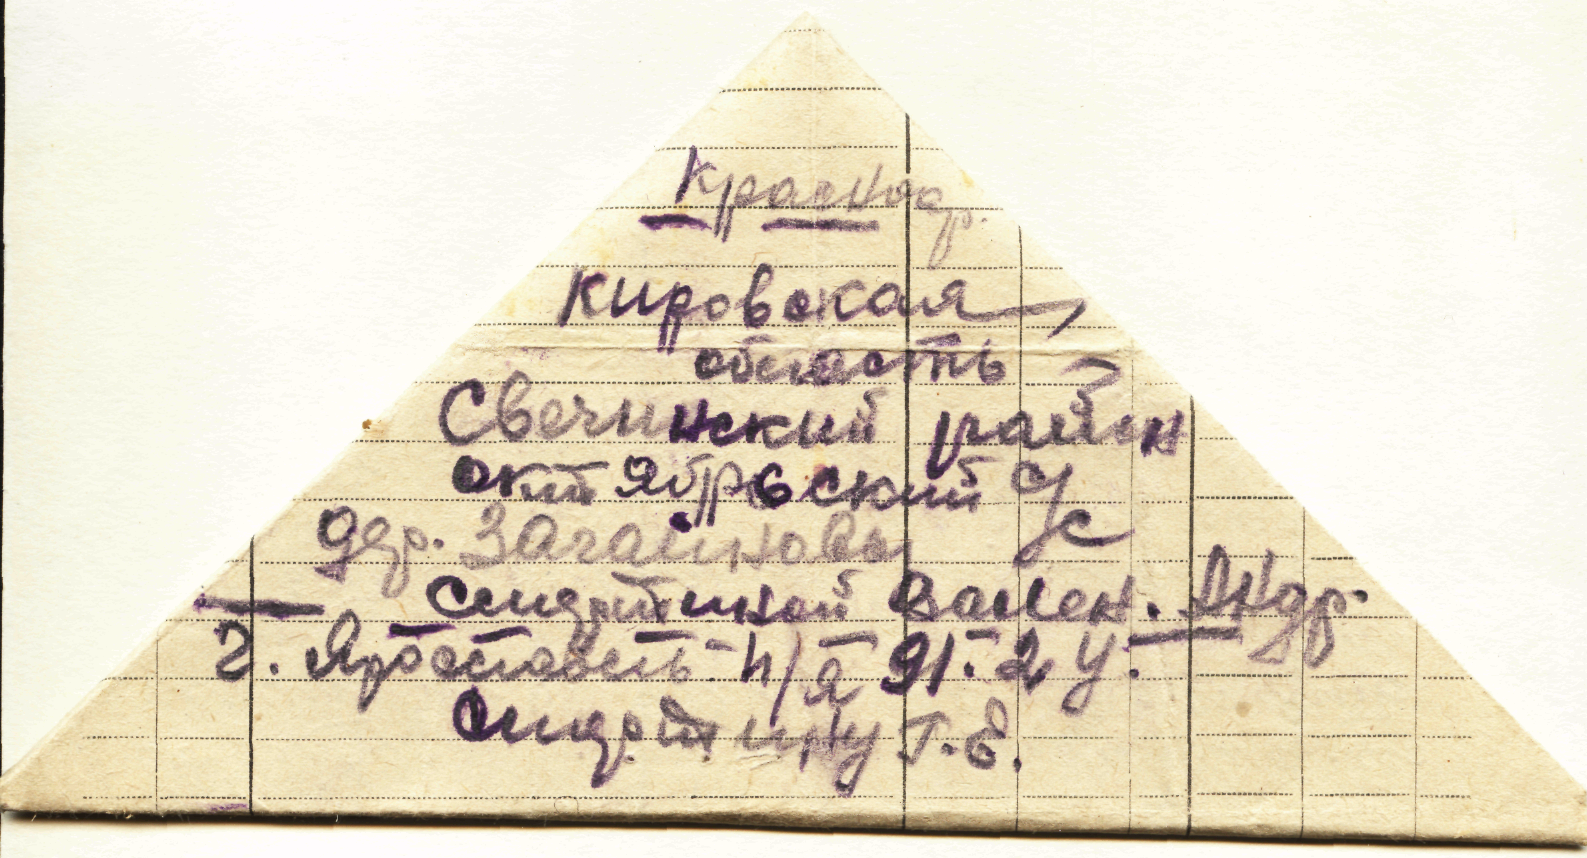 Краснодр.
Кировская
область
Свечинский район
октябрьский с/с
дер. Загайновы
Сидяткиной Вален. Андр.
г. Ярославль п/я 91. 2 у.
Г. Е.